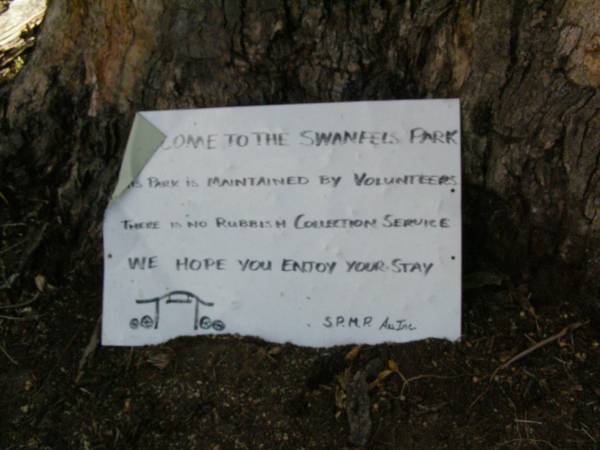 COME TO THE SWANFELS PARK
IS PARK IS MAINTAINED BY VOLUNTEERS
THERE IS NO RUBBISH COLLECTION SERVICE
WE HOPE YOU ENJOY YOUR STAY
S.P.M.P.